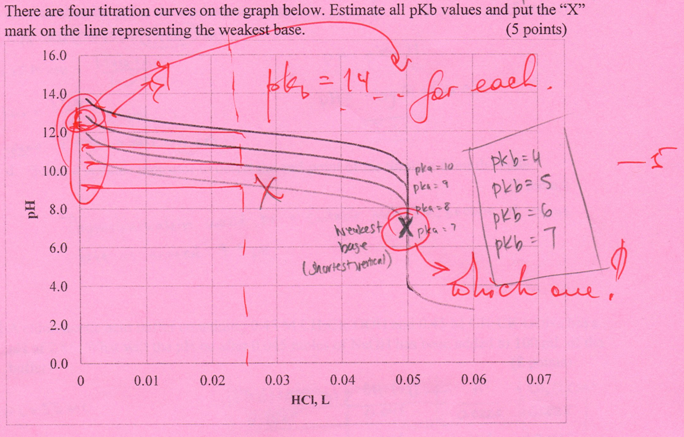 There are four titration curves on the graph below. Estimate all pKb values and put the “X”
mark on the line representing the weakest base. (5 points)
16.0
14.0
12.0
10.0
8.0
6.0
4.0
2.0
0.0
pH
pkb = 14 ... for each.
pka = 10
pka = 9
pka = 8
pka = 7
X
X
Weakest
base
(shortest vertical)
pkb = 4
pkb = 5
pkb = 6
pkb = 7
-5
which one?
0
0.01
0.02
0.03
0.04
0.05
0.06
0.07
HCl, L